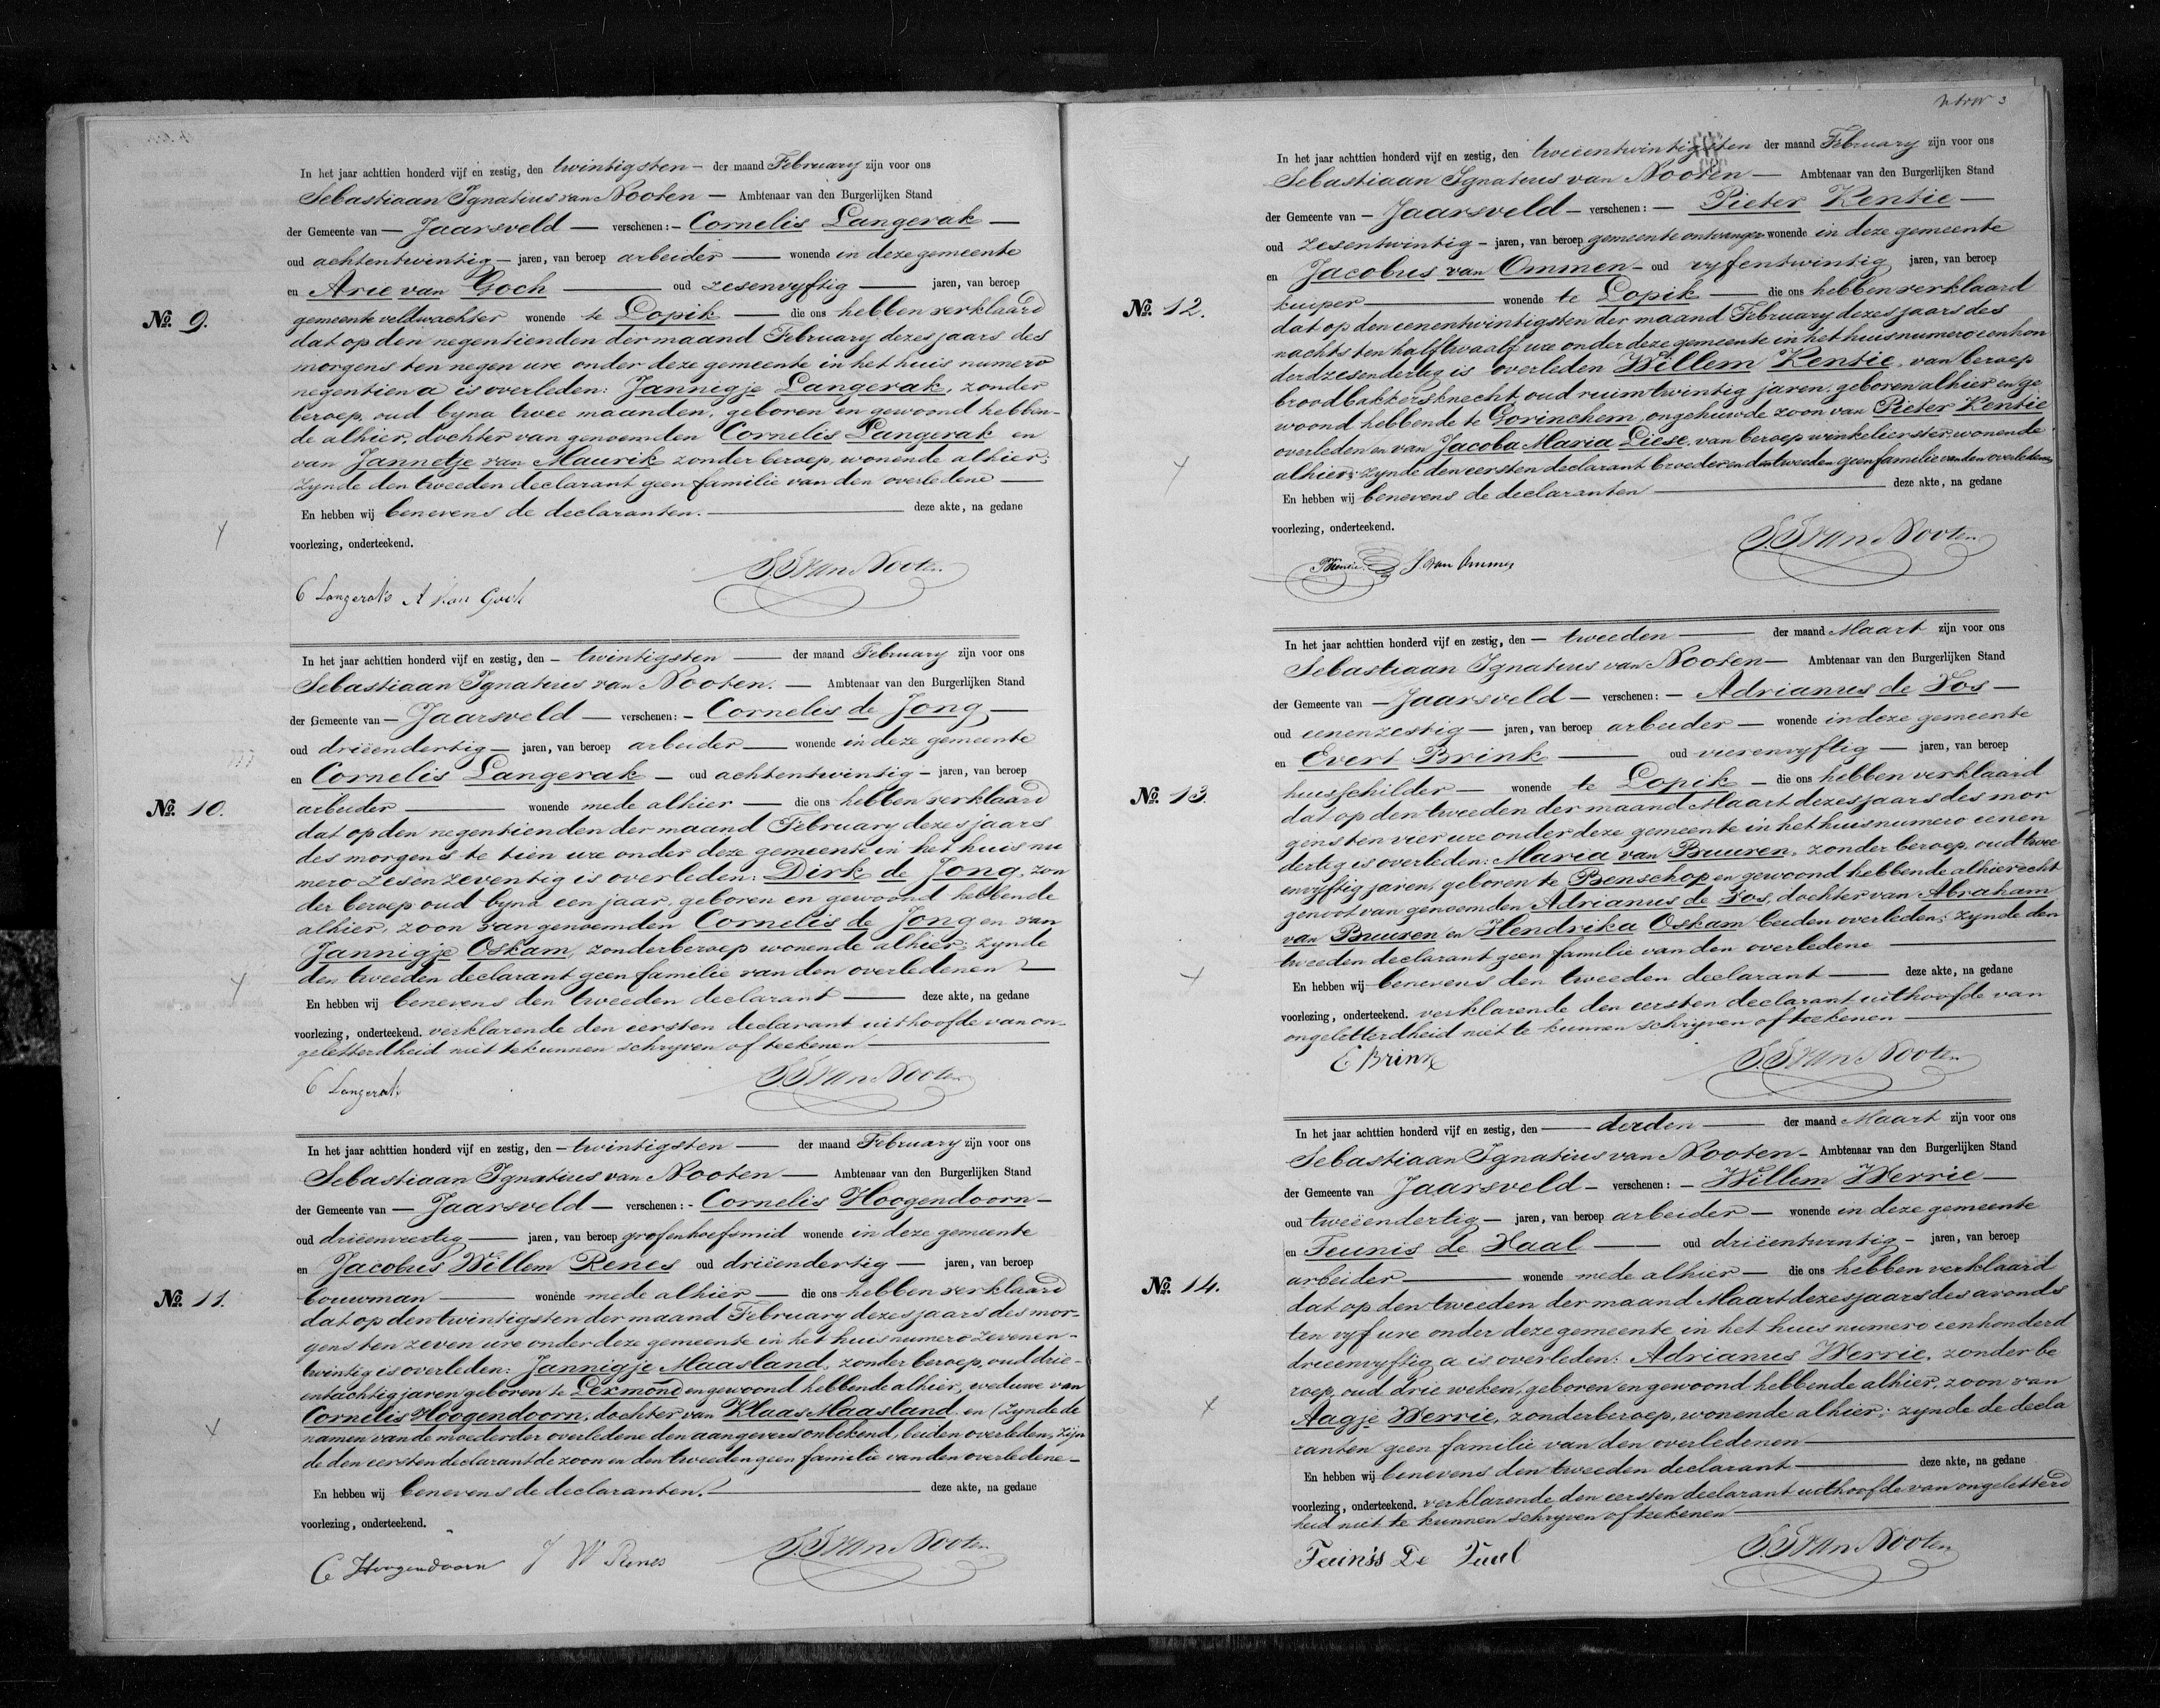 No. 9.
In het jaar achttien honderd vijf en zestig, den twintigsten - der maand February zijn voor ons
Sebastiaan Ignatius van Nooten — Ambtenaar van den Burgerlijken Stand
der Gemeente van — Jaarsveld — verschenen: - Cornelis Langerak —
oud achtentwintig — jaren, van beroep arbeider — wonende in deze gemeente
en Arie van Goch — oud zesenvyftig — jaren, van beroep
gemeente veldwachter wonende te Lopik — die ons hebben verklaard
dat op den negentienden der maand February dezes jaars des
morgens ten negen ure onder deze gemeente in het huis numero
negentien a is overleden: Jannigje Langerak, zonder
beroep, oud byna twee maanden, geboren en gewoond hebben-
de alhier, dochter van genoemden Cornelis Langerak en
van Jannetje van Maurik zonder beroep, wonende alhier;
zynde den tweeden declarant geen familie van den overledene —
En hebben wij benevens de declaranten. — deze akte, na gedane
voorlezing, onderteekend.
S. I. van Nooten
C Langerak A van Goch
No. 10.
In het jaar achttien honderd vijf en zestig, den — twintigsten — der maand February zijn voor ons
Sebastiaan Ignatius van Nooten. — Ambtenaar van den Burgerlijken Stand
der Gemeente van — Jaarsveld — verschenen: - Cornelis de Jong —
oud drieëndertig — jaren, van beroep arbeider — wonende in deze gemeente
en Cornelis Langerak — oud achtentwintig — jaren, van beroep
arbeider — wonende mede alhier — die ons hebben verklaard
dat op den negentienden der maand February dezes jaars
des morgens te tien ure onder deze gemeente in het huis nu
mero zesenzeventig is overleden: Dirk de Jong, zon
der beroep oud byna een jaar, geboren en gewoond hebbende
alhier, zoon van genoemden Cornelis de Jong en van
Jannigje Oskam, zonder beroep wonende alhier; zynde
den tweeden declarant geen familie van den overledenen —
En hebben wij benevens den tweeden declarant — deze akte, na gedane
voorlezing, onderteekend. verklarende den eersten declarant uithoofde van on-
geletterdheid niet te kunnen schryven of teekenen —
S. I. van Nooten
C Langerak
No. 11.
In het jaar achttien honderd vijf en zestig, den — twintigsten — der maand February zijn voor ons
Sebastiaan Ignatius van Nooten — Ambtenaar van den Burgerlijken Stand
der Gemeente van — Jaarsveld — verschenen: - Cornelis Hoogendoorn -
oud drieënveertig — jaren, van beroep grofenhoefsmid wonende in deze gemeente
en Jacobus Willem Renes oud drieëndertig — jaren, van beroep
bouwman — wonende mede alhier — die ons hebben verklaard
dat op den twintigsten der maand February dezes jaars des mor-
gens ten zeven ure onder deze gemeente in het huis numero zevenen-
twintig is overleden: Jannigje Maasland, zonder beroep, oud drie-
entachtig jaren geboren te Lexmond en gewoond hebbende alhier, weduwe van
Cornelis Hoogendoorn, dochter van Klaas Maasland en (zynde de
namen van de moeder der overledene den aangevers onbekend, beiden overleden, zijn
de den eersten declarant de zoon en den tweeden geen familie van den overledene -
En hebben wij benevens de declaranten. — deze akte, na gedane
voorlezing, onderteekend.
C Hoogendoorn J W Renes S. I. van Nooten
3
No. 12.
In het jaar achttien honderd vijf en zestig, den tweeentwintigsten der maand February zijn voor ons
Sebastiaan Ignatius van Nooten — Ambtenaar van den Burgerlijken Stand
der Gemeente van — Jaarsveld — verschenen: — Pieter Kentie —
oud zesentwintig — jaren, van beroep gemeente ontvanger wonende in deze gemeente
en Jacobus van Ommen — oud vyfentwintig jaren, van beroep
kuiper — wonende te Lopik — die ons hebben verklaard
dat op den eenentwintigsten der maand February dezes jaars des
nachts ten half twaalf ure onder deze gemeente in het huis numero eenhon
derdzesendertig is overleden Willem Kentie, van beroep
broodbakkersknecht, oud ruim twintig jaren, geboren alhier en ge
woond hebbende te Gorinchem, ongehuwde zoon van Pieter Kentie
overleden en van Jacoba Maria Liese, van beroep winkelierster, wonende
alhier; zynde den eersten declarant broeder en den tweeden geen familie van den overledenen
En hebben wij benevens de declaranten — deze akte, na gedane
voorlezing, onderteekend.
S. I. van Nooten
PKentie J van Ommen
No. 13.
In het jaar achttien honderd vijf en zestig, den — tweeden — der maand Maart zijn voor ons
Sebastiaan Ignatius van Nooten — Ambtenaar van den Burgerlijken Stand
der Gemeente van — Jaarsveld — verschenen: — Adrianus de Vos —
oud eenenzestig — jaren, van beroep arbeider — wonende in deze gemeente
en Evert Brink — oud vierenvyftig — jaren, van beroep
huisschilder — wonende te Lopik — die ons hebben verklaard
dat op den tweeden der maand Maart dezes jaars des mor
gens ten vier ure onder deze gemeente in het huis numero eenen
dertig is overleden: Maria van Buuren, zonder beroep, oud twee
envyftig jaren, geboren te Benschop en gewoond hebbende alhier echt
genoot van genoemden Adrianus de Vos, dochter van Abraham
van Buuren en Hendrika Oskam beiden overleden; zynde den
tweeden declarant geen familie van den overledene —
En hebben wij benevens den tweeden declarant — deze akte, na gedane
voorlezing, onderteekend. verklarende den eersten declarant uithoofde van
ongeletterdheid niet te kunnen schryven of teekenen —
E Brink S. I. van Nooten
No. 14.
In het jaar achttien honderd vijf en zestig, den — derden — der maand Maart zijn voor ons
Sebastiaan Ignatius van Nooten - Ambtenaar van den Burgerlijken Stand
der Gemeente van Jaarsveld — verschenen: — Willem Werrie —
oud tweeëndertig — jaren, van beroep arbeider — wonende in deze gemeente
en Teunis de Vaal — oud drieëntwintig - jaren, van beroep
arbeider — wonende mede alhier — die ons hebben verklaard
dat op den tweeden der maand Maart dezes jaars des avonds
ten vyf ure onder deze gemeente in het huis numero eenhonderd
drieenvyftig a is overleden: Adrianus Werrie, zonder be
roep, oud drie weken, geboren en gewoond hebbende alhier, zoon van
Aagje Werrie, zonder beroep, wonende alhier; zynde de decla
ranten geen familie van den overledenen —
En hebben wij benevens den tweeden declarant — deze akte, na gedane
voorlezing, onderteekend. verklarende den eersten declarant uithoofde van ongeletterd
heid niet te kunnen schryven of teekenen —
Teunis De Vaal S. I. van Nooten